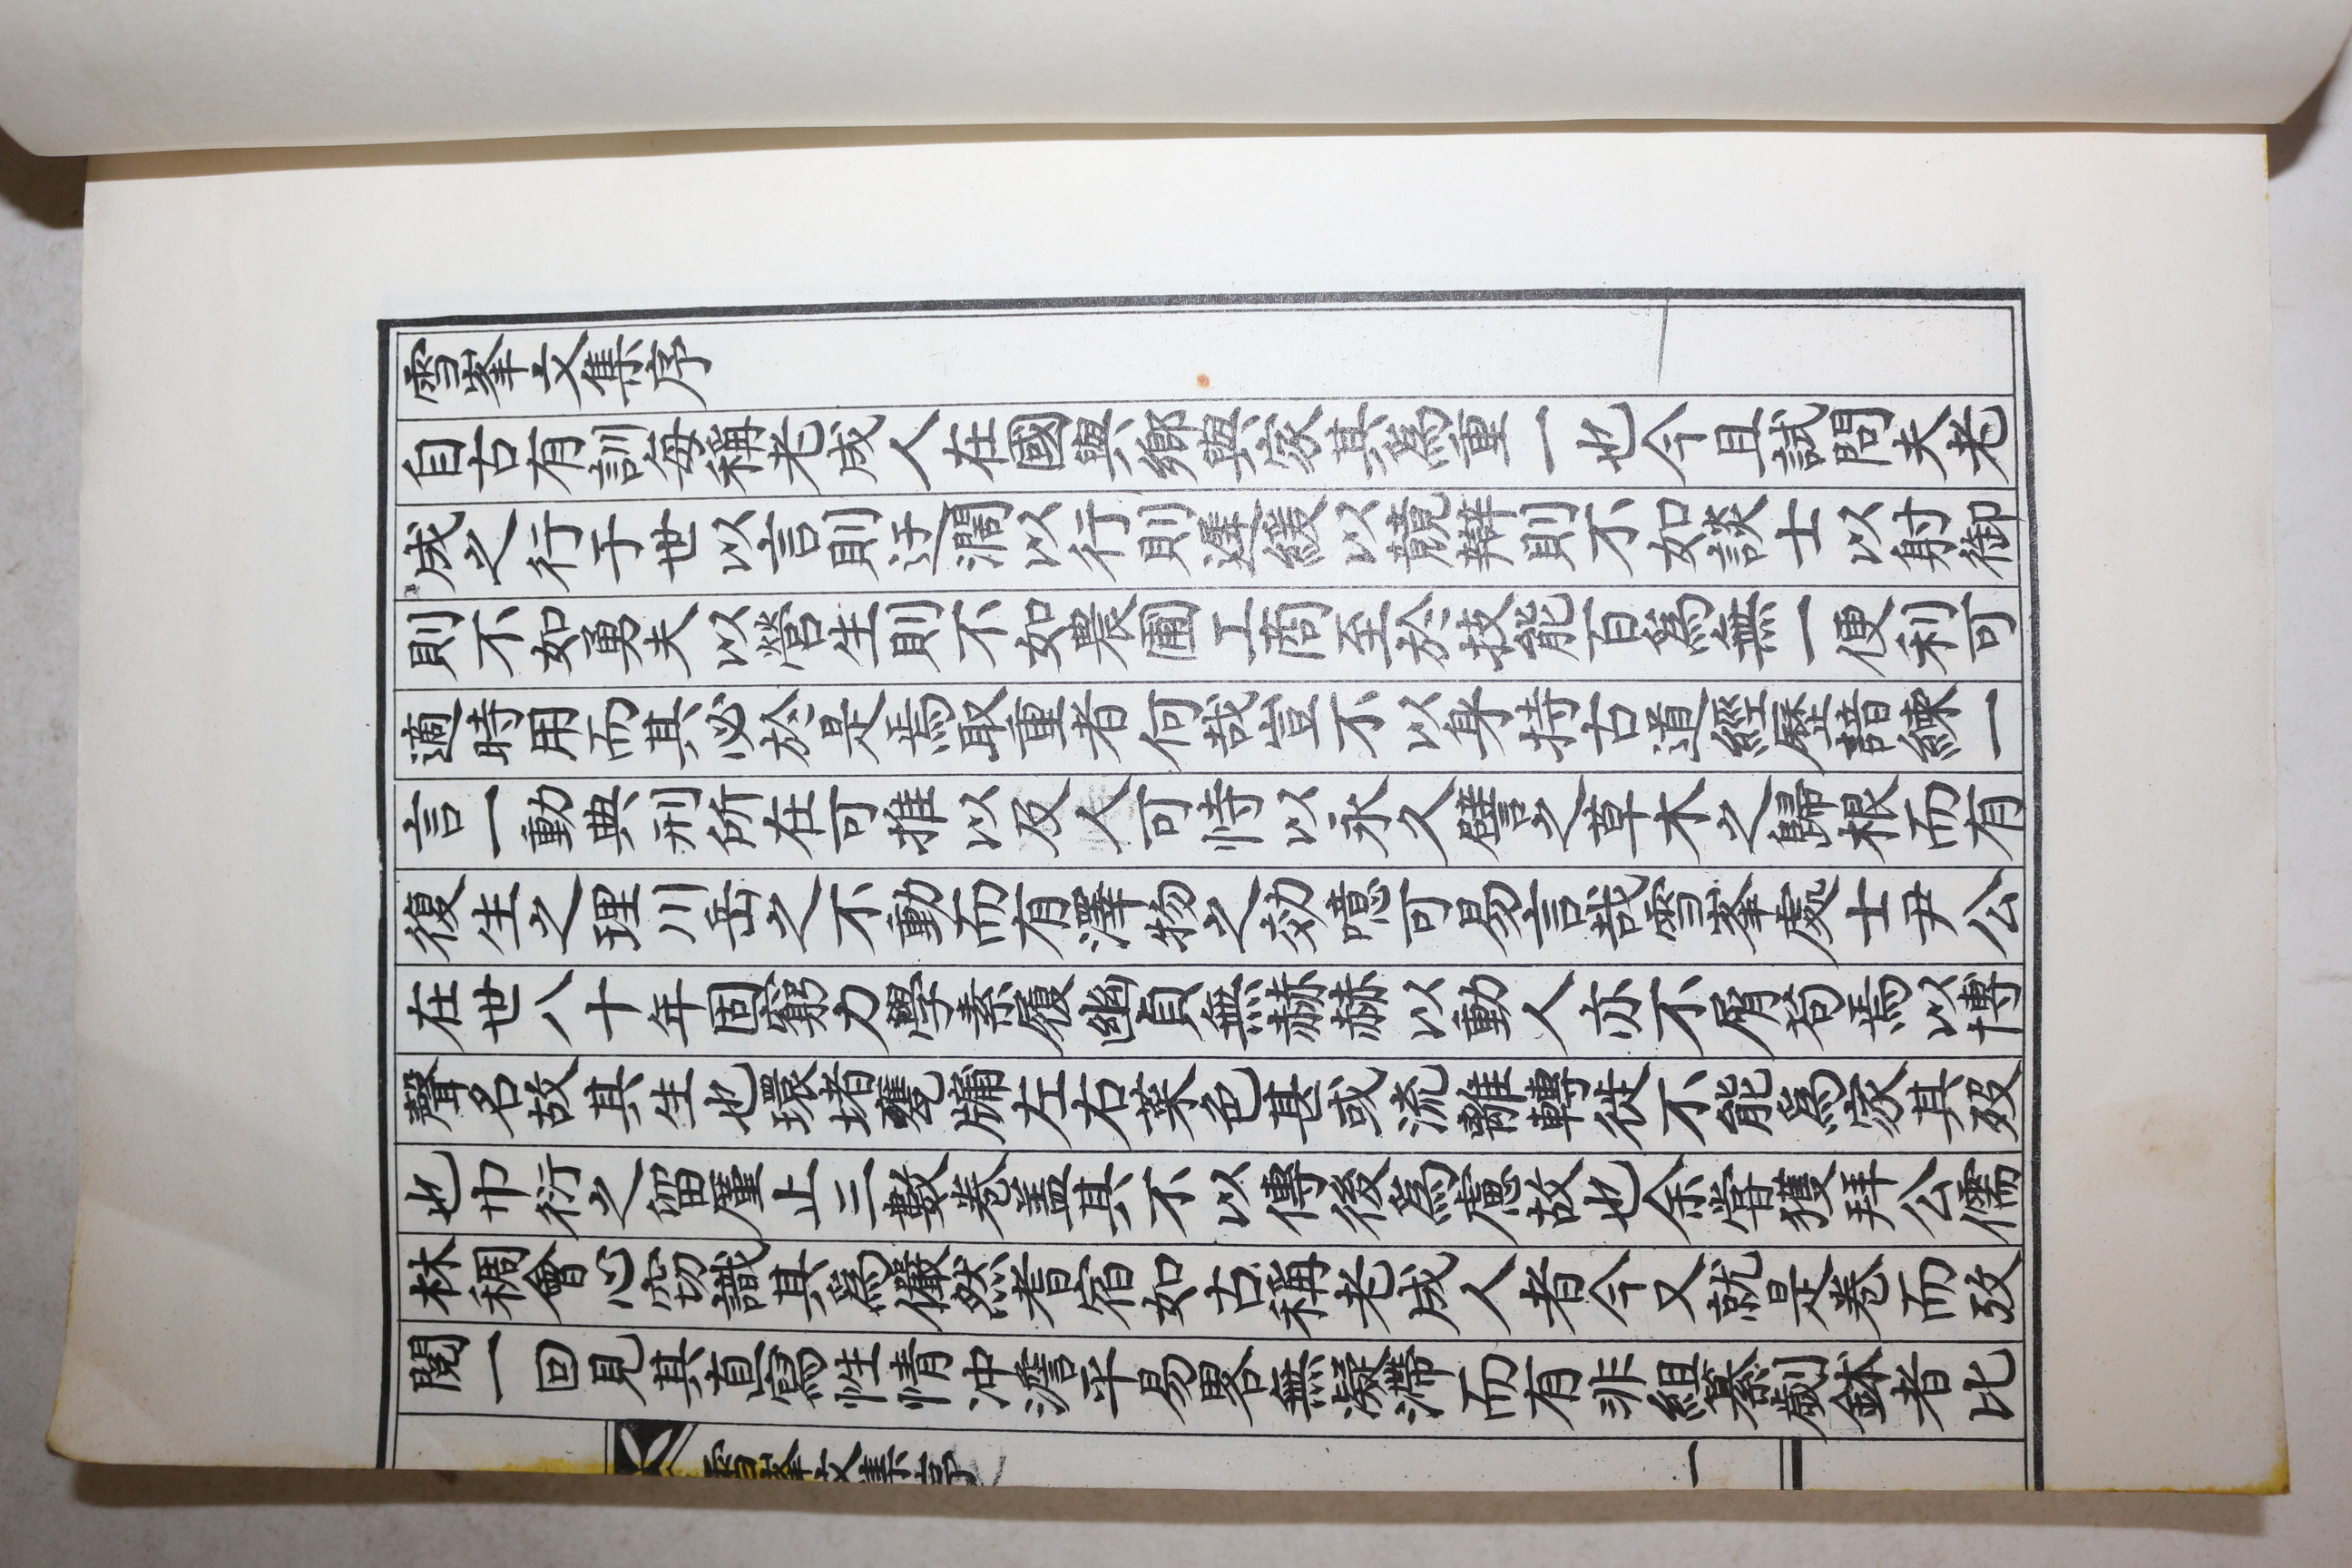 雪峯文集序
自古有訓每稱老成人在國與鄉與家其爲重一也今且試問夫老
成之行于世以言則迂濶以行則遲緩以競辯則不如談士以射御
則不如勇夫以營生則不如農圃工商至於技能百爲無一便利可
適時用而其必於是焉取重者何哉豈不以身持古道經歷諳練一
言一動典刑所在可推以及人可恃以永久譬之草木之歸根而有
復生之理川岳之不動而有澤物之効噫可易言哉雪峯處士尹公
在世八十年固窮力學素履幽貞無赫赫以動人亦不屑苟焉以博
聲名故其生也環堵甕牖左右葉色甚或流離轉徙不能爲家其歿
也巾衍之留厪止三數卷盖其不以傳後爲慮故也余嘗獲拜公儒
林稠會心窃識其爲儼然耆宿如古稱老成人者今又就是卷而攷
閱一回見其直寫性情沖澹平易畧無凝滯而有非組纂劌鉥者比
雪峯文集序 一